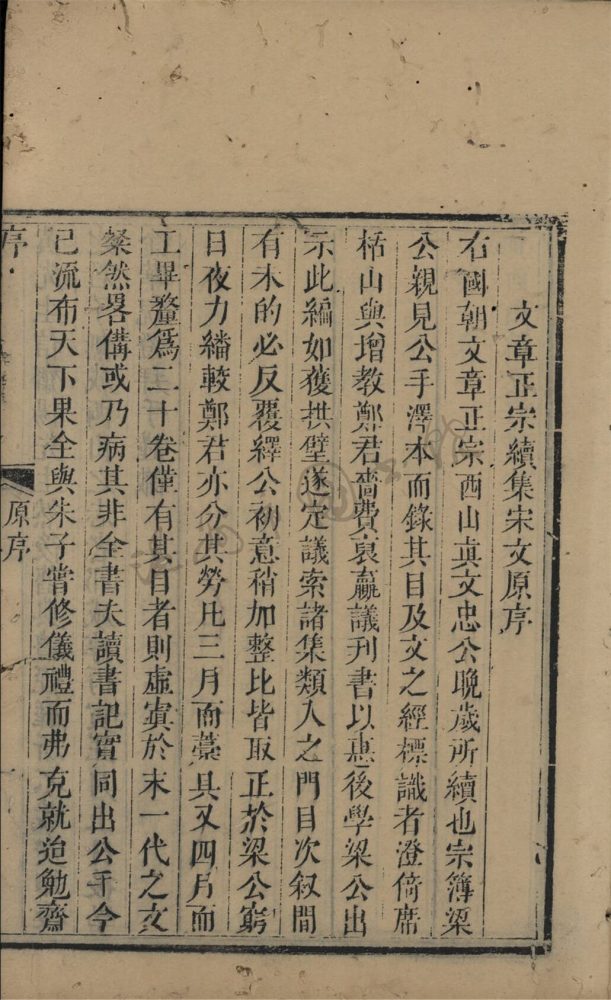 文章正宗續集宋文原序
右國朝文章正宗西山真文忠公晚歲所續也宗簿梁
公親見公手澤本而錄其目及文之經標識者澄倚席
栝山與增教鄭君嗇費裒羸議刋書以惠後學梁公出
示此編如獲拱璧遂定議索諸集類入之門目次叙間
有未的必反覆繹公初意稍加整比皆取正於梁公窮
日夜力繙較鄭君亦分其勞凡三月而藁具又四月而
工畢釐爲二十卷僅有其目者則虛寘於末一代之文
粲然畧備或乃病其非全書夫讀書記實同出公手今
已流布天下果全與朱子嘗修儀禮而弗克就迨勉齋
序
原序